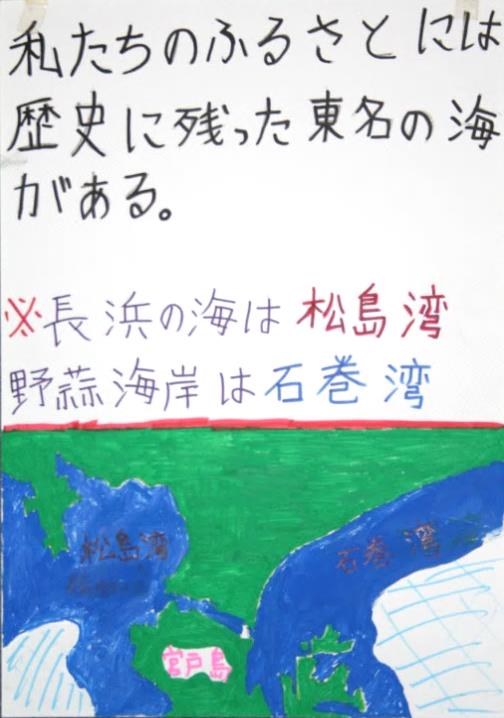 私たちのふるさとには
歴史に残った東名の海
がある。
※長浜の海は松島湾
野蒜海岸は石巻湾
松島湾
石巻湾
宮戸島